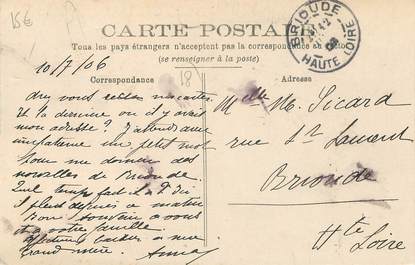 15€
CARTE POSTALE
Tous les pays étrangers n'acceptent pas la correspondance au
(se renseigner à la poste)
BRIOUDE
HAUTE LOIRE
10/7/06
Correspondance
Adresse
18
vous mes cartes
Et la dernière ou il y avait
mon adresse ? J'attends avec
impatience un petit mot
Pour me donner des
nouvelles de Brioude.
Quel temps fait il
Il pleut depuis ce matin
Bon souvenir a vous
et a votre famille
Grand mère. Anna
Melle M. Picard
rue St Laurent
Brioude
Hte Loire